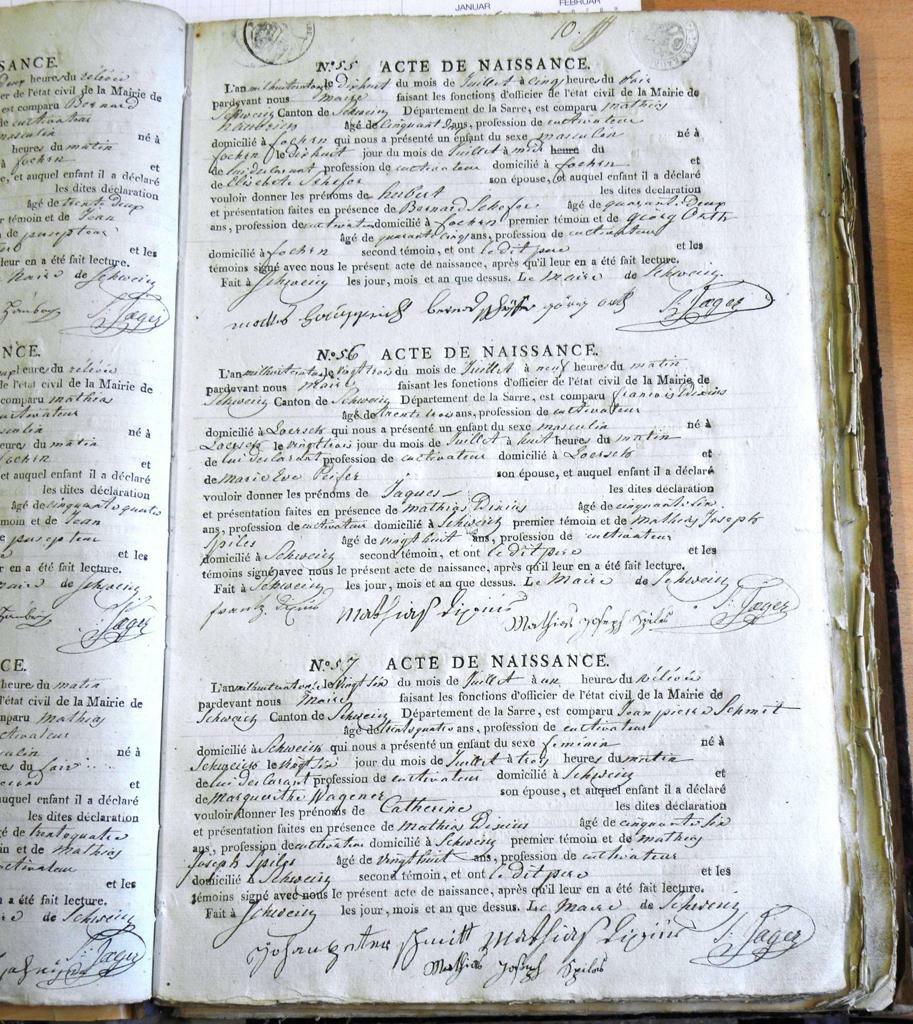 JANUAR FEBRUAR
SANCE.
heure du relevée
er de l'état civil de la Mairie de
est comparu Bernard
de cultivateur
masculin né à
heures du matin
à fochrn et
e, et auquel enfant il a déclaré
les dites déclaration
âgé de trente deux
témoin et de Jean
de
et les
leur en a été fait lecture.
Maire de Schweig
S: Jaeger
NCE.
heures du relevée
de l'état civil de la Mairie de
comparu mathias
cultivateur
né à
heures du matin
fochrn et
et auquel enfant il a déclaré
les dites déclaration
âgé de cinquante quatre
moin et de Jean
et les
r en a été fait lecture.
maire de Schweig
S: Jaeger
CE.
heure du matin
l'état civil de la Mairie de
mparu mathias
cultivateur
né à
es du soir
et
auquel enfant il a déclaré
les dites déclaration
gé de trente quatre
in et de mathias
cultivateur
et les
n a été fait lecture.
de Schweig
S: Jaeger
10.
N.º 55 ACTE DE NAISSANCE.
L'an mil huit cent onze le dix huit du mois de Juillet à cinq heures du soir
pardevant nous maire faisant les fonctions d'officier de l'état civil de la Mairie de
Schweig Canton de Schweig Département de la Sarre, est comparu mathias
âgé de cinquant ans, profession de cultivateur
domicilié à fochrn qui nous a présenté un enfant du sexe masculin né à
fochrn le dix huit jour du mois de Juillet à midi heure du
de lui declarant profession de cultivateur domicilié à fochrn et
de Elisabeth Schefer son épouse, et auquel enfant il a déclaré
vouloir donner les prénoms de hubert les dites déclaration
et présentation faites en présence de Bernard Schefer âgé de quarante Deux
ans, profession de cultivateur domicilié à fochrn premier témoin et de georg Orth
âgé de quarante cinq ans, profession de cultivateur
domicilié à fochrn second témoin, et ont le dit pere et les
témoins signé avec nous le présent acte de naissance, après qu'il leur en a été fait lecture.
Fait à Schweig les jour, mois et an que dessus. Le maire de Schweig.
S: Jaeger
N.º 56 ACTE DE NAISSANCE.
L'an mil huit cent onze le vingt trois du mois de Juillet à neuf heures du matin
pardevant nous maire faisant les fonctions d'officier de l'état civil de la Mairie de
Schweig Canton de Schweig Département de la Sarre, est comparu francois Dixius
âgé de trente trois ans, profession de cultivateur
domicilié à Loersch qui nous a présenté un enfant du sexe masculin né à
Loersch le vingt trois jour du mois de Juillet à huit heures du matin
de lui declarant profession de cultivateur domicilié à Loersch et
de marie Eve Peifer son épouse, et auquel enfant il a déclaré
vouloir donner les prénoms de Jaques les dites déclaration
et présentation faites en présence de mathias Dixius âgé de cinquante six
ans, profession de cultivateur domicilié à Schweig premier témoin et de mathias Joseph
Spiles âgé de vingt huit ans, profession de cultivateur
domicilié à Schweig second témoin, et ont le dit pere et les
témoins signé avec nous le présent acte de naissance, après qu'il leur en a été fait lecture.
Fait à Schweig les jour, mois et an que dessus. Le Maire de Schweig
frantz Dixius Mathias Dixius Mathias Joseph Spiles S: Jaeger
N.º 57 ACTE DE NAISSANCE.
L'an mil huit cent onze le vingt six du mois de Juillet à une heure du relevée
pardevant nous Maire faisant les fonctions d'officier de l'état civil de la Mairie de
Schweich Canton de Schweig Département de la Sarre, est comparu Jean pierre Schmit
âgé de trente quatre ans, profession de cultivateur
domicilié à Schweich qui nous a présenté un enfant du sexe feminin né à
Schweich le vingt six jour du mois de Juillet à trois heures du matin
de lui declarant profession de cultivateur domicilié à Schweig et
de Marguerithe Wagener son épouse, et auquel enfant il a déclaré
vouloir donner les prénoms de Catherine les dites déclaration
et présentation faites en présence de mathias Dixius âgé de cinquante six
ans, profession de cultivateur domicilié à Schweig premier témoin et de mathias
Joseph Spiles âgé de vingt huit ans, profession de cultivateur
domicilié à Schweig second témoin, et ont le dit pere et les
témoins signé avec nous le présent acte de naissance, après qu'il leur en a été fait lecture.
Fait à Schweig les jour, mois et an que dessus. Le Maire de Schweig
Johan peter Schmitt Mathias Dixius S: Jaeger
Mathias Joseph Spiles